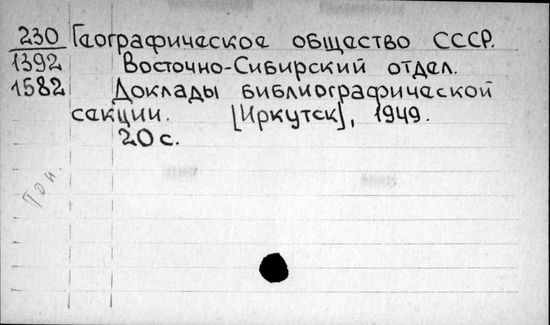 230 Географическое общество СССР.
1392 Восточно-Сибирский отдел.
1582 Доклады библиографической
секции. [Иркутск], 1949.
20 с.